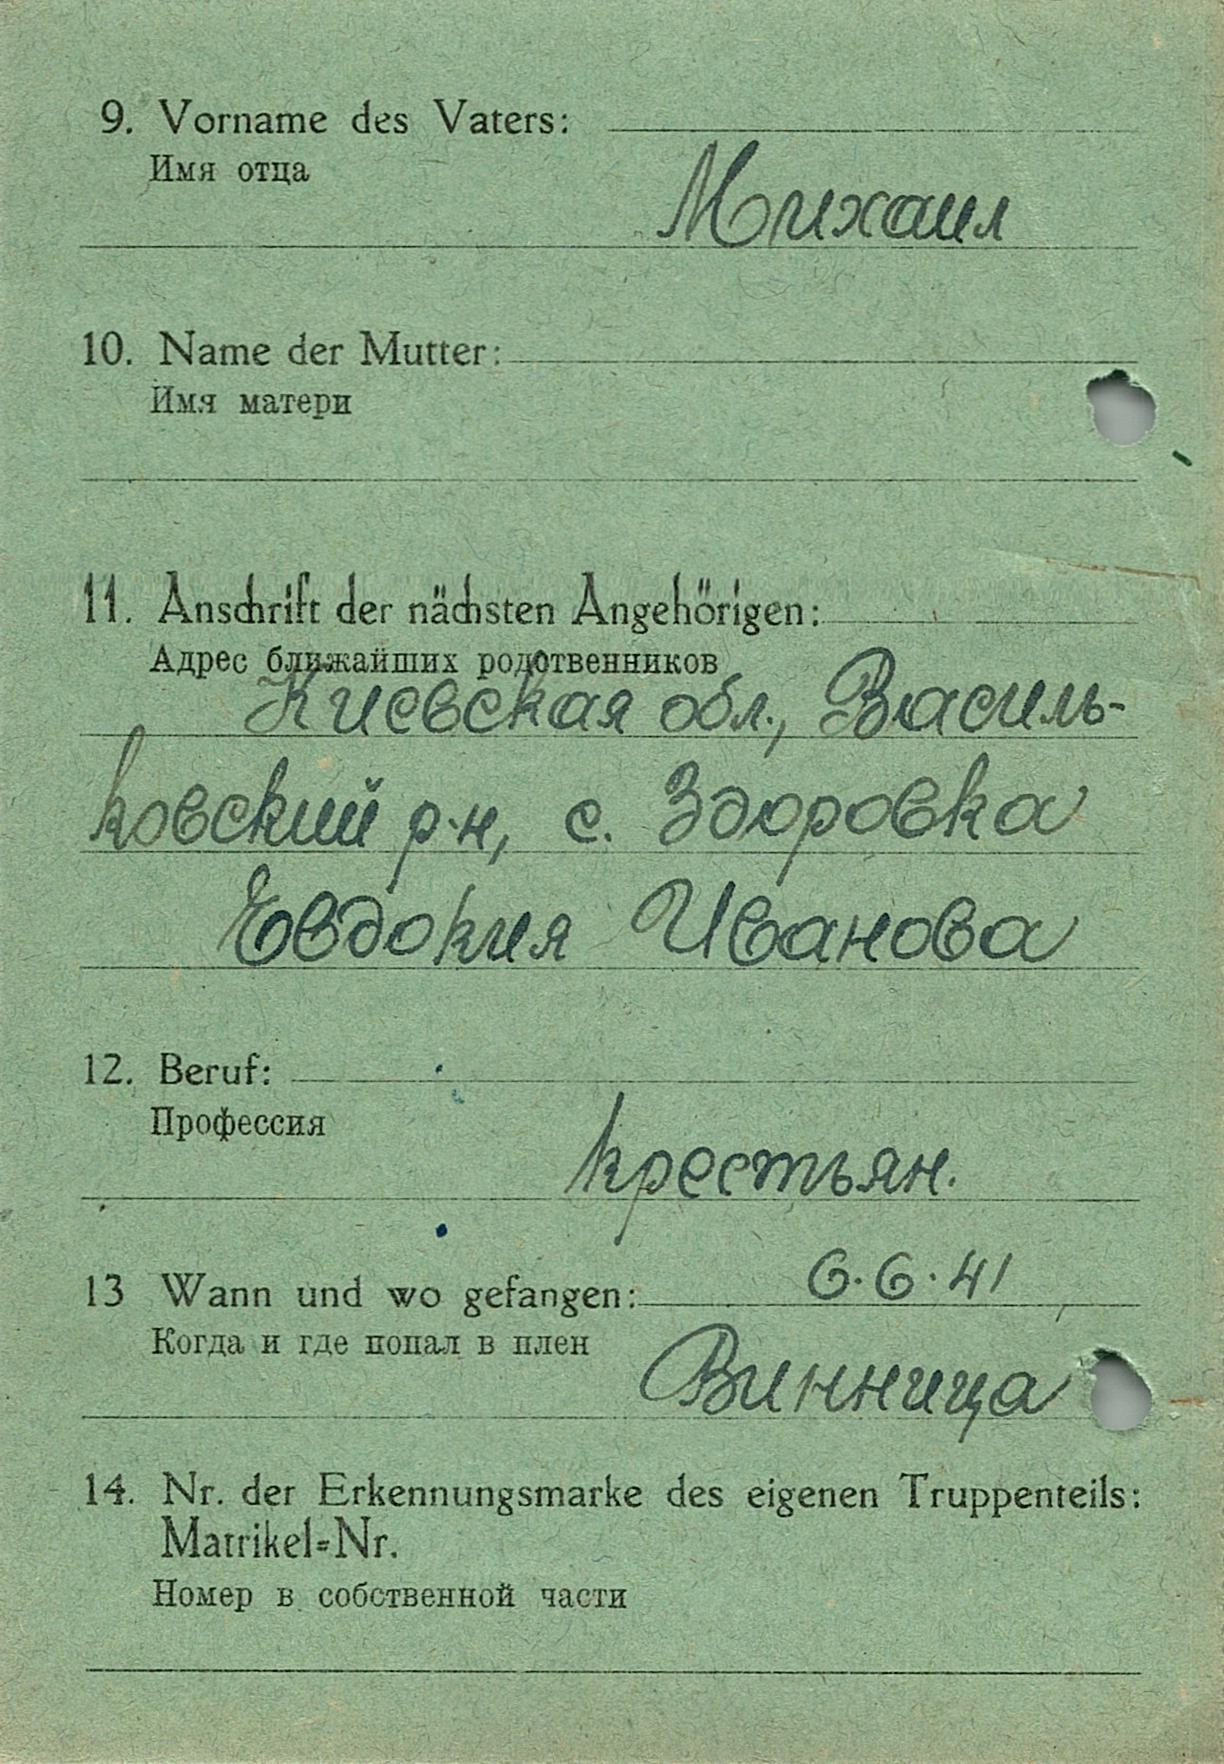 9. Vorname des Vaters:
Имя отца
Михаил
10. Name der Mutter:
Имя матери
11. Anschrift der nächsten Angehörigen:
Адрес ближайших родственников
Киевская обл., Василь-
ковский р-н, с. Здоровка
Евдокия Иванова
12. Beruf:
Профессия
крестьян.
13 Wann und wo gefangen: 6.6.41
Когда и где попал в плен
Винница
14. Nr. der Erkennungsmarke des eigenen Truppenteils:
Matrikel=Nr.
Номер в собственной части